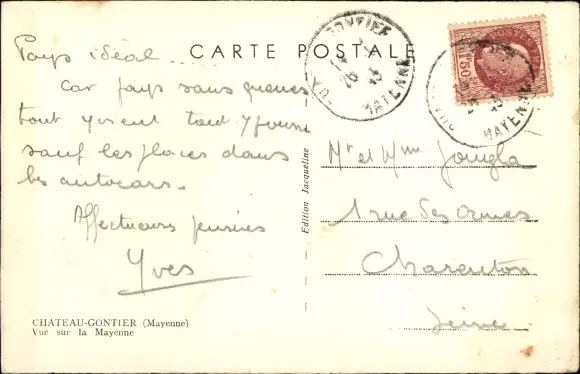 CARTE POSTALE
Pays idéal
Car pays sans queues
tout y tout y
sauf les places dans
les autocars.
Affectueuses pensées
Yves
CHATEAU-GONTIER (Mayenne)
Vue sur la Mayenne
Edition Jacqueline
GONTIER
MAYENNE
1F50
MAYENNE
Mr et Mme Jougla
1 rue des Ormes
Charenton
Seine